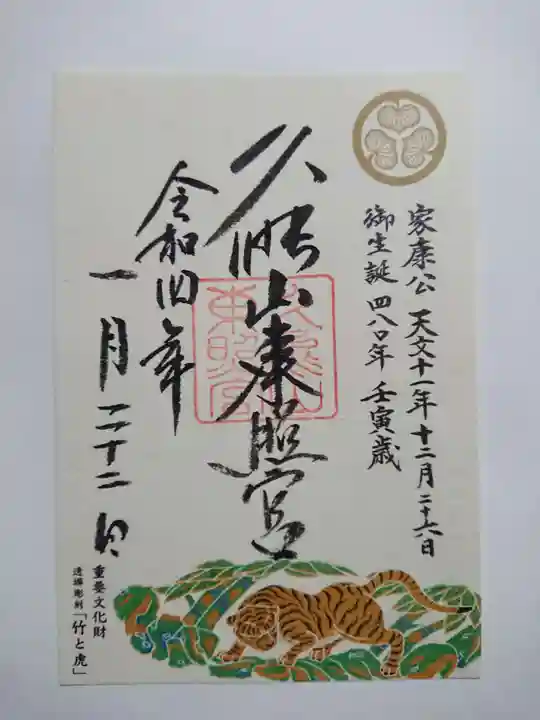 家康公 天文十一年 十二月二十六日
御生誕 四八〇年 壬寅歳
久能山東照宮
令和四年
一月二十二日
重要文化財
透塀彫刻「竹と虎」
久能山東照宮